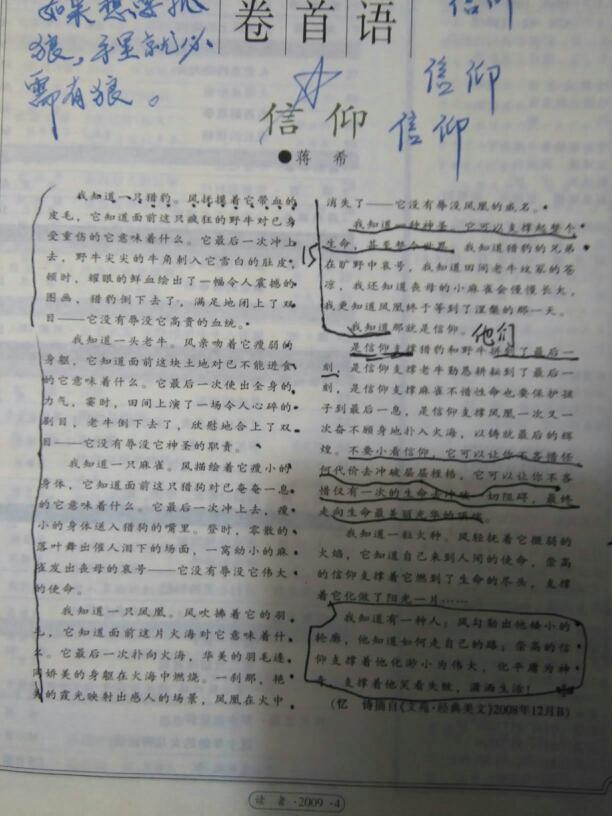 如果想要抓
狼，手里就必
需有狼。
卷首语
信仰
信仰
信仰
信仰
●蒋 希
我知道一只猎豹。风抚摸着它带血的
皮毛，它知道面前这只疯狂的野牛对已身
受重伤的它意味着什么。它最后一次冲上
去，野牛尖尖的牛角刺入它雪白的肚皮，
顿时，耀眼的鲜血绘出了一幅令人震撼的
图画，猎豹倒下去了，满足地闭上了双
目——它没有辱没它高贵的血统。
我知道一头老牛。风亲吻着它瘦弱的
身躯，它知道面前这块土地对已不能进食
的它意味着什么。它最后一次使出全身的
力气，霎时，田间上演了一场令人心碎的
剧目，老牛倒下去了，欣慰地合上了双
目——它没有辱没它神圣的职责。
我知道一只麻雀。风描绘着它瘦小的
身体，它知道面前这只猎狗对已奄奄一息
的它意味着什么。它最后一次冲上去，瘦
小的身体送入猎狗的嘴里。登时，零散的
落叶舞出催人泪下的场面，一窝幼小的麻
雀发出丧母的哀号——它没有辱没它伟大
的使命。
我知道一只凤凰。风吹拂着它的羽
毛，它知道面前这片火海对它意味着什
么。它最后一次扑向火海，华美的羽毛连
同娇美的身躯在火海中燃烧。一刹那，艳
美的霞光映射出感人的场景，凤凰在火中
消失了——它没有辱没凤凰的威名。
15
我知道一种神圣，它可以支撑起整个
生命，甚至整个世界。我知道猎豹的兄弟
在旷野中哀号，我知道田间老牛坟冢的苍
凉，我还知道丧母的小麻雀会慢慢长大，
我更知道凤凰终于等到了涅槃的那一天。
我知道那就是信仰。
他们
是信仰支撑猎豹和野牛拼到了最后一
刻，是信仰支撑老牛勤恳耕耘到了最后一
刻，是信仰支撑麻雀不惜性命也要保护孩
子到最后一息，是信仰支撑凤凰一次又一
次奋不顾身地扑入火海，以铸就最后的辉
煌。不要小看信仰，它可以让你不吝惜任
何代价去冲破层层桎梏，它可以让你不吝
惜仅有一次的生命去冲破一切阻碍，最终
走向生命最美丽光华的顶端。
我知道一粒火种。风轻抚着它微弱的
火焰，它知道自己来到人间的使命，崇高
的信仰支撑着它燃到了生命的尽头，支撑
着它化做了阳光一片……
我知道有一种人：风勾勒出他矮小的
轮廓，他知道如何走自己的路；崇高的信
仰支撑着他化渺小为伟大，化平庸为神
奇，支撑着他笑看失败，潇洒生活！
(忆 诗摘自《文苑·经典美文》2008年12月B)
读者·2009·4